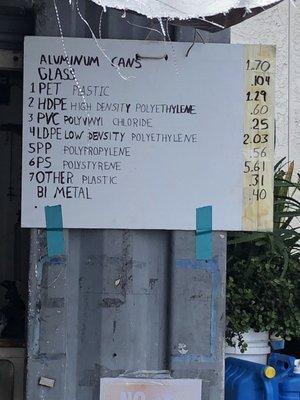 ALUMINUM CANS 1.70
GLASS .104
1 PET PLASTIC 1.29
2 HDPE HIGH DENSITY POLYETHYLENE .60
3 PVC POLYVINYL CHLORIDE .25
4 LDPE LOW DENSITY POLYETHYLENE 2.03
5 PP POLYPROPYLENE .56
6 PS POLYSTYRENE 5.61
7 OTHER PLASTIC .31
BI METAL .40